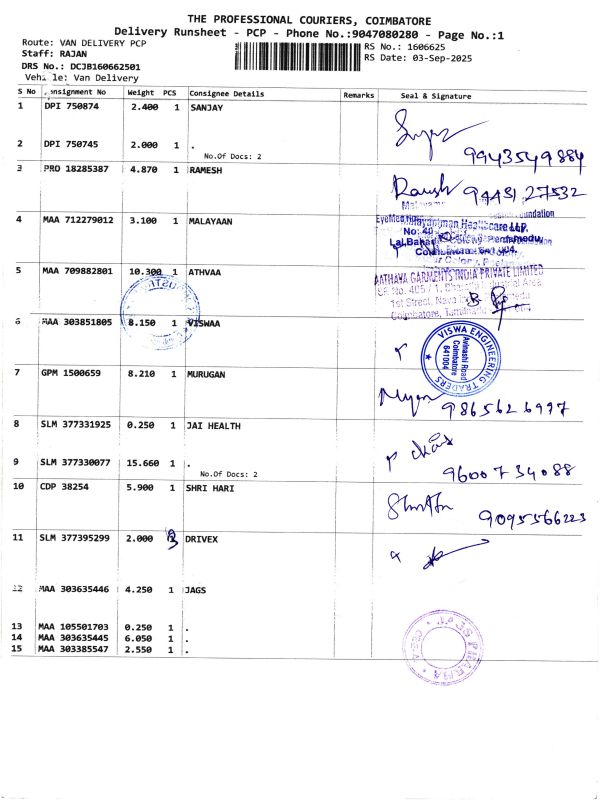 THE PROFESSIONAL COURIERS, COIMBATORE
Delivery Runsheet - PCP - Phone No.:9047080280 - Page No.:1
Route: VAN DELIVERY PCP
RS No.: 1606625
Staff: RAJAN
RS Date: 03-Sep-2025
DRS No.: DCJB160662501
Vehicle: Van Delivery
S No Consignment No Weight PCS Consignee Details Remarks Seal & Signature
1 DPI 750874 2.400 1 SANJAY
2 DPI 750745 2.000 1 .
No.Of Docs: 2
9943549884
3 PRO 18285387 4.870 1 RAMESH
Ramesh 94431 27532
4 MAA 712279012 3.100 1 MALAYAAN
Healthcare LLP,
No: 40
5 MAA 709882801 10.300 1 ATHVAA
AATHAVA GARMENTS INDIA PRIVATE LIMITED
SF No. 405 / 1, Industrial Area
1st Street,
Coimbatore,
6 MAA 303851805 8.150 1 VISWAA
VISWA ENGINEERING TRADERS
Avinashi Road
Coimbatore
641004
7 GPM 1500659 8.210 1 MURUGAN
9865626997
8 SLM 377331925 0.250 1 JAI HEALTH
9 SLM 377330077 15.660 1 .
No.Of Docs: 2
96007 34088
10 CDP 38254 5.900 1 SHRI HARI
9095566223
11 SLM 377395299 2.000 3 DRIVEX
12 MAA 303635446 4.250 1 JAGS
13 MAA 105501703 0.250 1 .
14 MAA 303635445 6.050 1 .
15 MAA 303385547 2.550 1 .
PHARMA